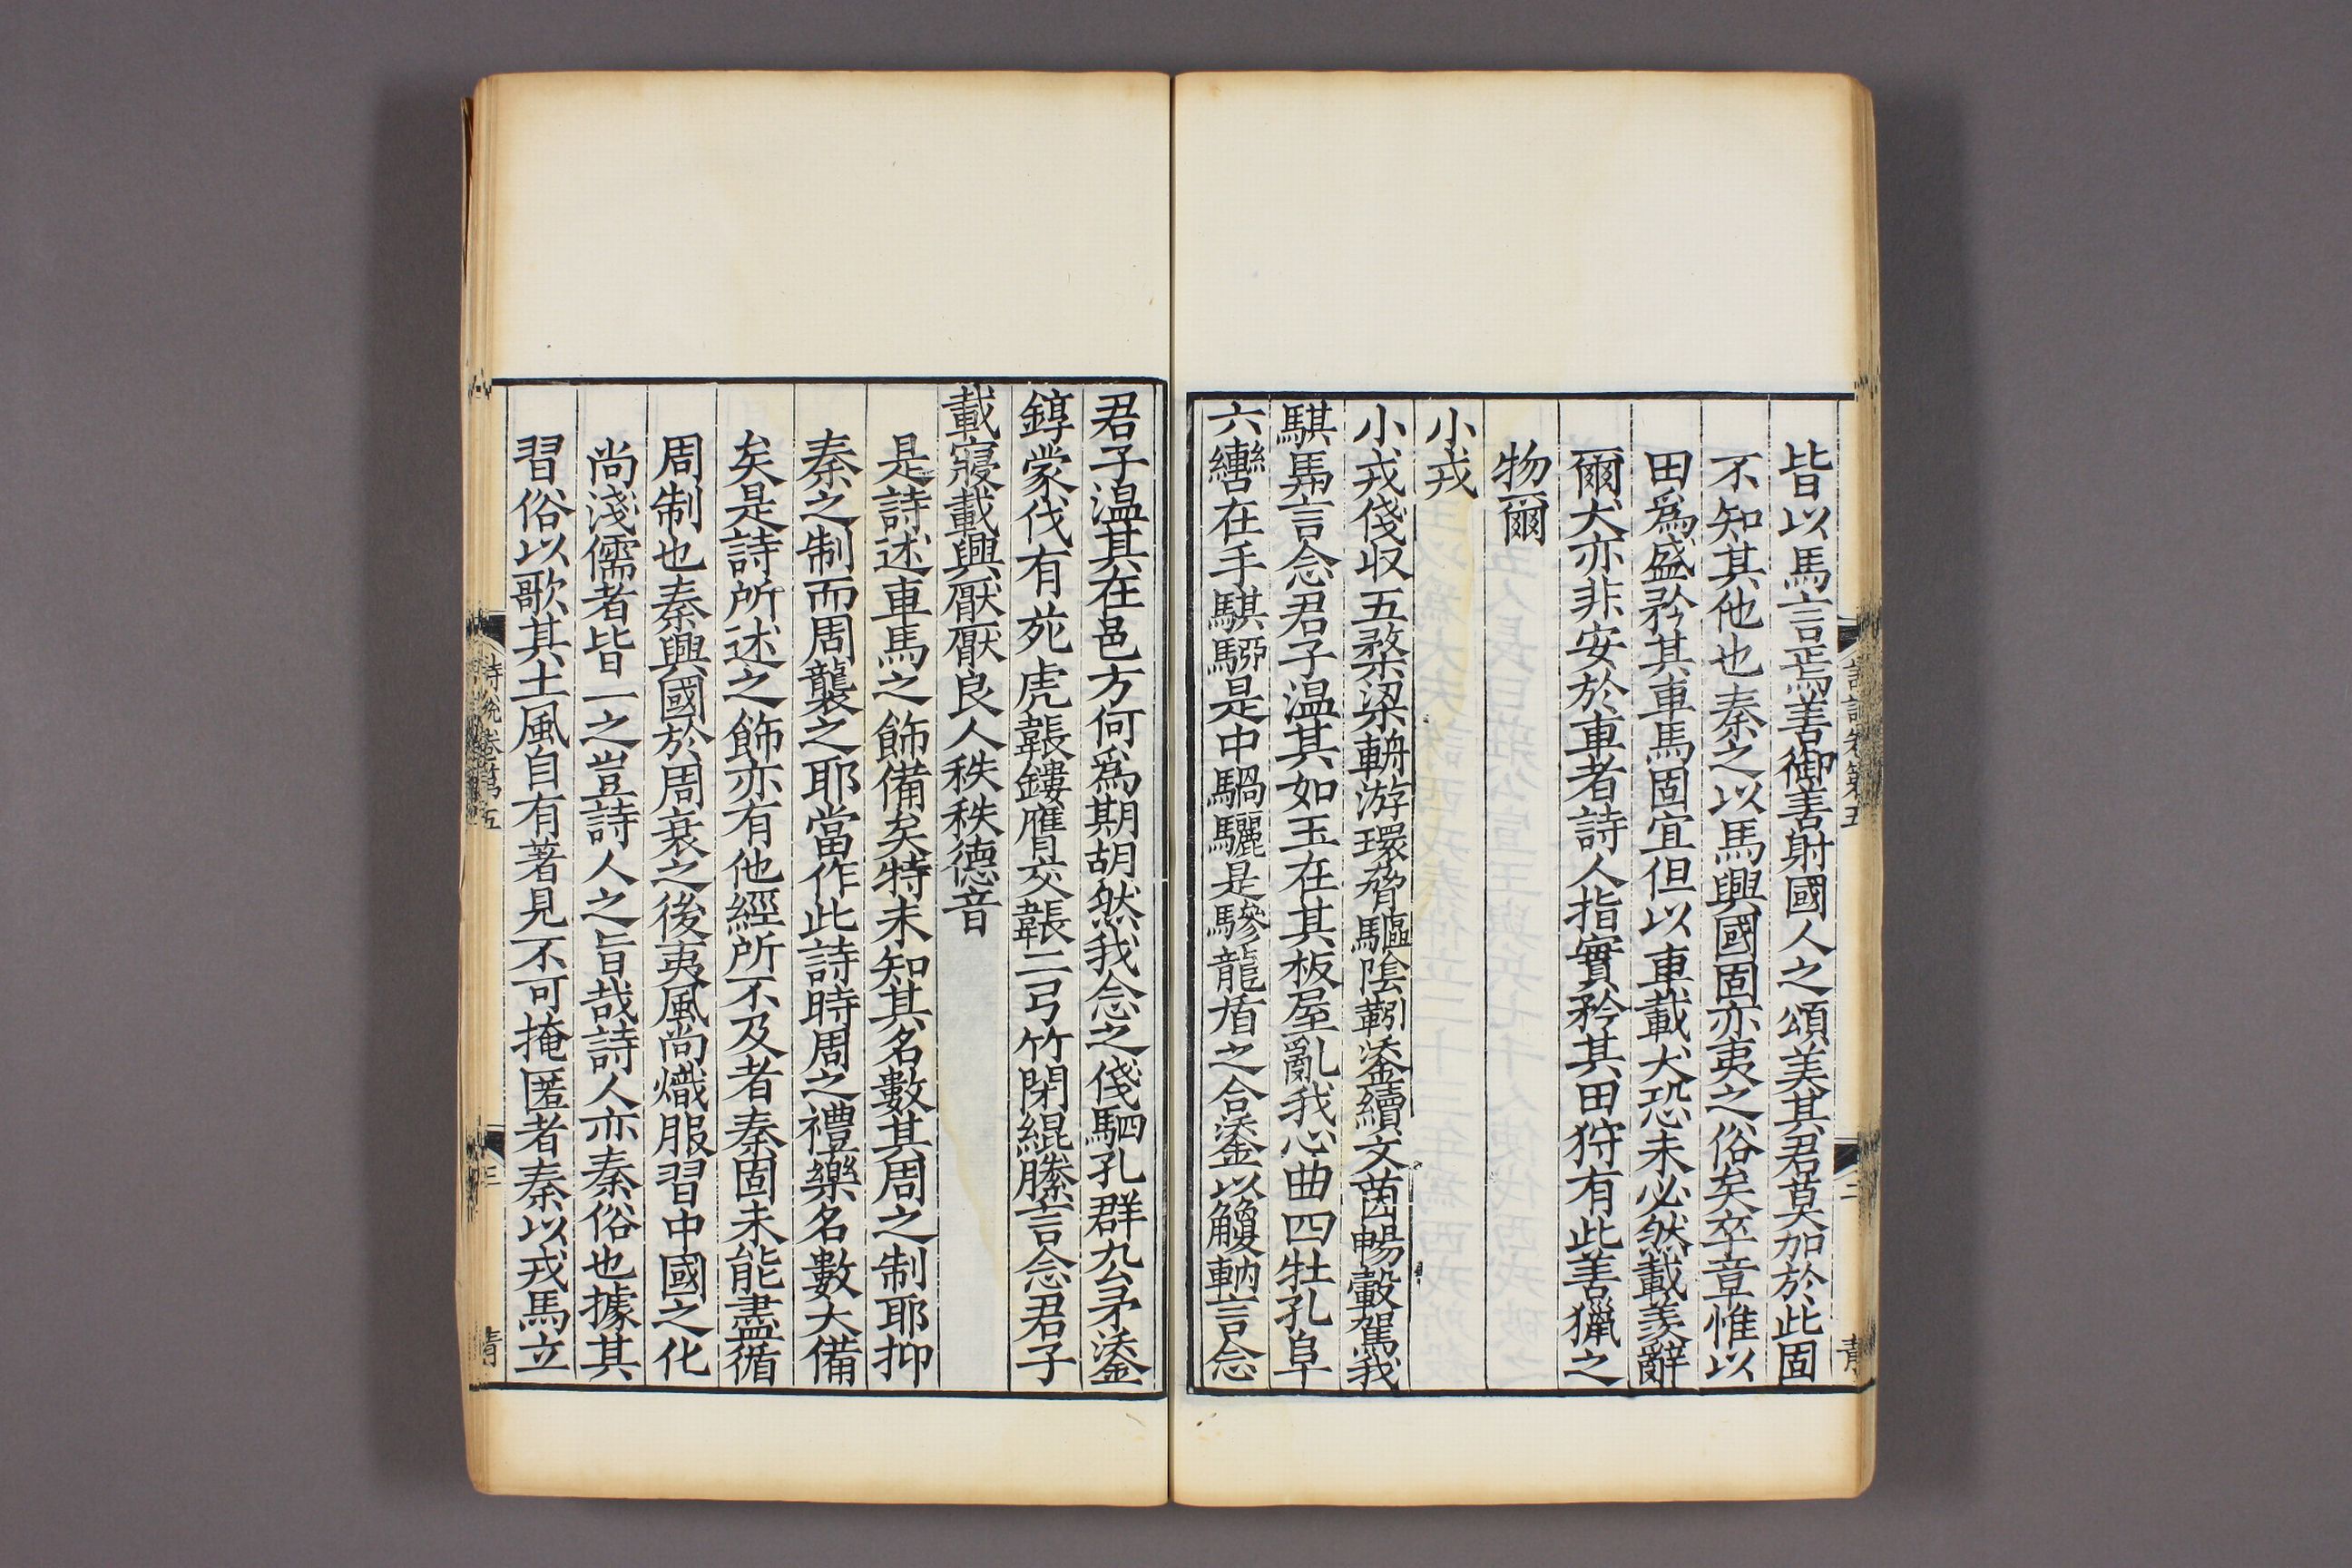 皆以馬言焉善御善射國人之頌美其君莫加於此固
不知其他也秦之以馬興國固亦夷之俗矣卒章惟以
田爲盛矜其車馬固宜但以車載犬恐未必然載羨辭
爾犬亦非安於車者詩人指實矜其田狩有此善獵之
物爾
小戎
小戎俴収五楘梁輈游環脅驅陰靷鋈續文茵暢轂駕我
騏馵言念君子温其如玉在其板屋亂我心曲四牡孔阜
六轡在手騏駵是中騧驪是驂龍盾之合鋈以觼軜言念
君子温其在邑方何爲期胡然我念之俴駟孔群厹矛鋈
錞蒙伐有苑虎韔鏤膺交韔二弓竹閉緄縢言念君子
載寢載興厭厭良人秩秩德音
是詩述車馬之飾備矣特未知其名數其周之制耶抑
秦之制而周襲之耶當作此詩時周之禮樂名數大備
矣是詩所述之飾亦有他經所不及者秦固未能盡循
周制也秦興國於周衰之後夷風尚熾服習中國之化
尚淺儒者皆一之豈詩人之旨哉詩人亦秦俗也據其
習俗以歌其土風自有著見不可掩匿者秦以戎馬立
詩說卷第五
三